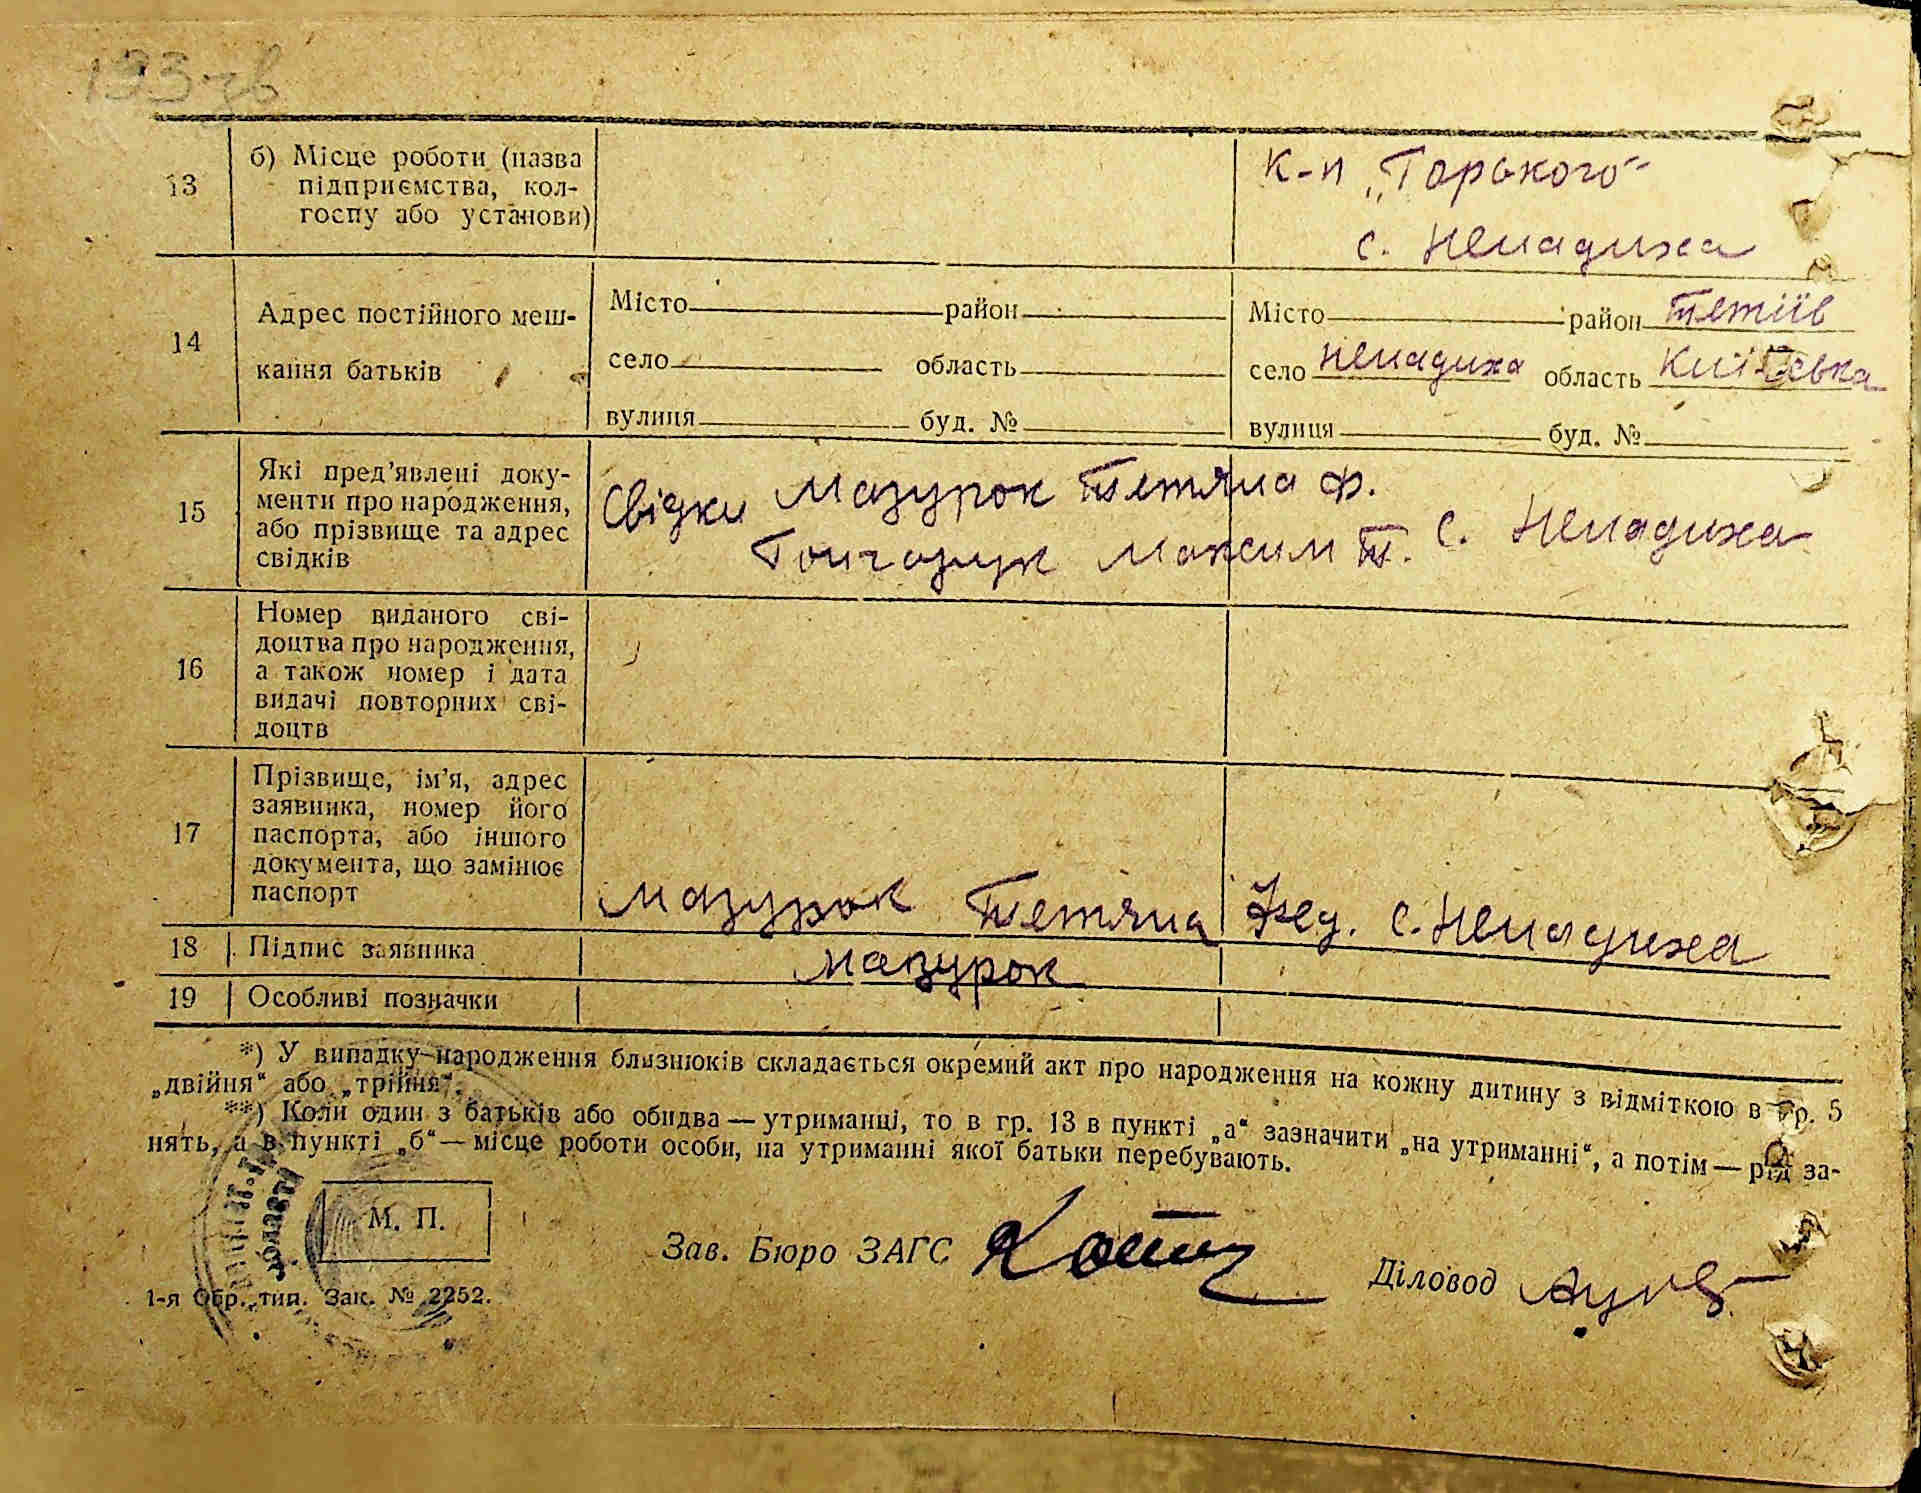 133 зв
13
б) Місце роботи (назва
підприємства, кол-
госпу або установи)
К-п „Горького"
с. Ненадиха
14
Адрес постійного меш-
кання батьків
Місто район
село область
вулиця буд. №
Місто район Тетіїв
село Ненадиха область Київська
вулиця буд. №
15
Які пред'явлені доку-
менти про народження,
або прізвище та адрес
свідків
Свідки Мазурок Тетяна Ф.
Гончарук Максим Т. с. Ненадиха
16
Номер виданого сві-
доцтва про народження,
а також номер і дата
видачі повторних сві-
доцтв
17
Прізвище, ім'я, адрес
заявника, номер його
паспорта, або іншого
документа, що замінює
паспорт
Мазурок Тетяна Фед. с. Ненадиха
18 Підпис заявника Мазурок
19 Особливі позначки
*) У випадку народження близнюків складається окремий акт про народження на кожну дитину з відміткою в гр. 5
„двійня“ або „трійня“.
**) Коли один з батьків або обидва — утриманці, то в гр. 13 в пункті „а“ зазначити „на утриманні“, а потім — рід за-
нять, а в пункті „б“ — місце роботи особи, на утриманні якої батьки перебувають.
М. П.
Зав. Бюро ЗАГС
Діловод
1-я Обр. тип. Зак. № 2252.